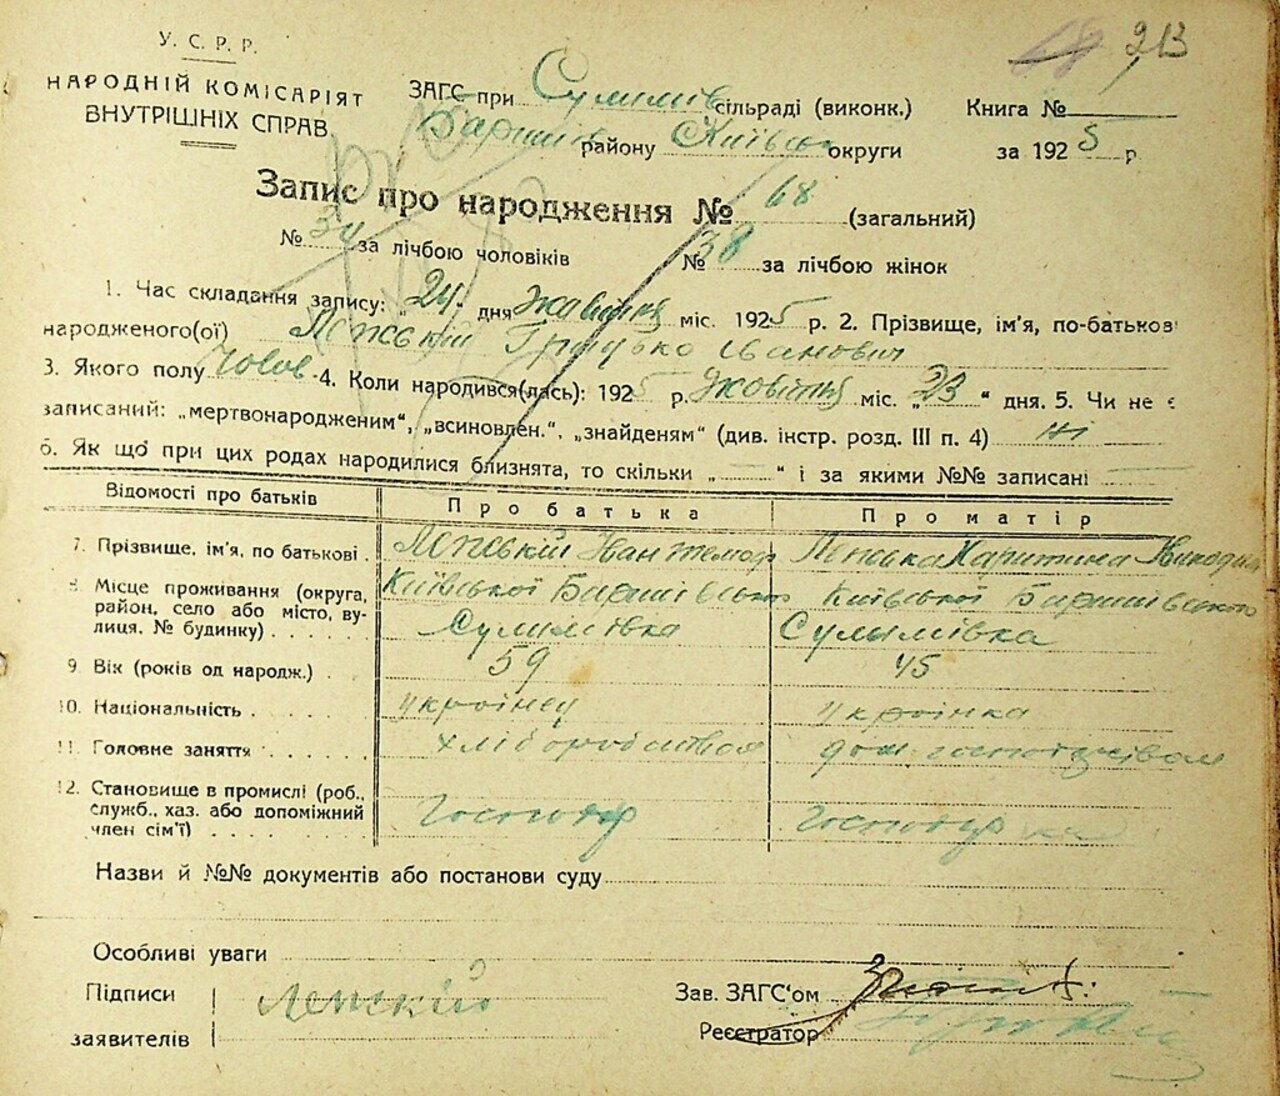 68 213
У. С. Р. Р.
НАРОДНІЙ КОМІСАРІЯТ
ВНУТРІШНІХ СПРАВ
ЗАГС при Сулимів сільраді (виконк.) Книга № 1
Баришів району Київськ округи за 1925 р.
Запис про народження № 68 (загальний)
№ 34 за лічбою чоловіків № 38 за лічбою жінок
1. Час складання запису: „24" дня жовтня міс. 1925 р. 2. Прізвище, ім'я, по-батькові
народженого(ої) Лепський Іванович
3. Якого полу чолов 4. Коли народився(лась): 1925 р. жовтня міс. „23" дня. 5. Чи не є
записаний: „мертвонародженим", „всиновлен.", „знайденям" (див. інстр. розд. III п. 4) ні
6. Як що при цих родах народилися близнята, то скільки „ — " і за якими №№ записані —
Відомості про батьків Про батька Про матір
7. Прізвище, ім'я, по батькові . Лепський Іван Тимоф Лепська Харитина Никодим
8. Місце проживання (округа, район, село або місто, вулиця, № будинку) . . . . . Київської Баришівського Київської Баришівського
Сулимівка Сулимівка
9. Вік (років од народж.) . 59 45
10. Національність . . . . . українец українка
11. Головне заняття . . . . . хліборобство дом. господарством
12. Становище в промислі (роб., служб., хаз. або допоміжний член сім'ї) . . . . . Господар Господарка
Назви й №№ документів або постанови суду
Особливі уваги
Підписи Лепский Зав. ЗАГС'ом
заявителів Реєстратор